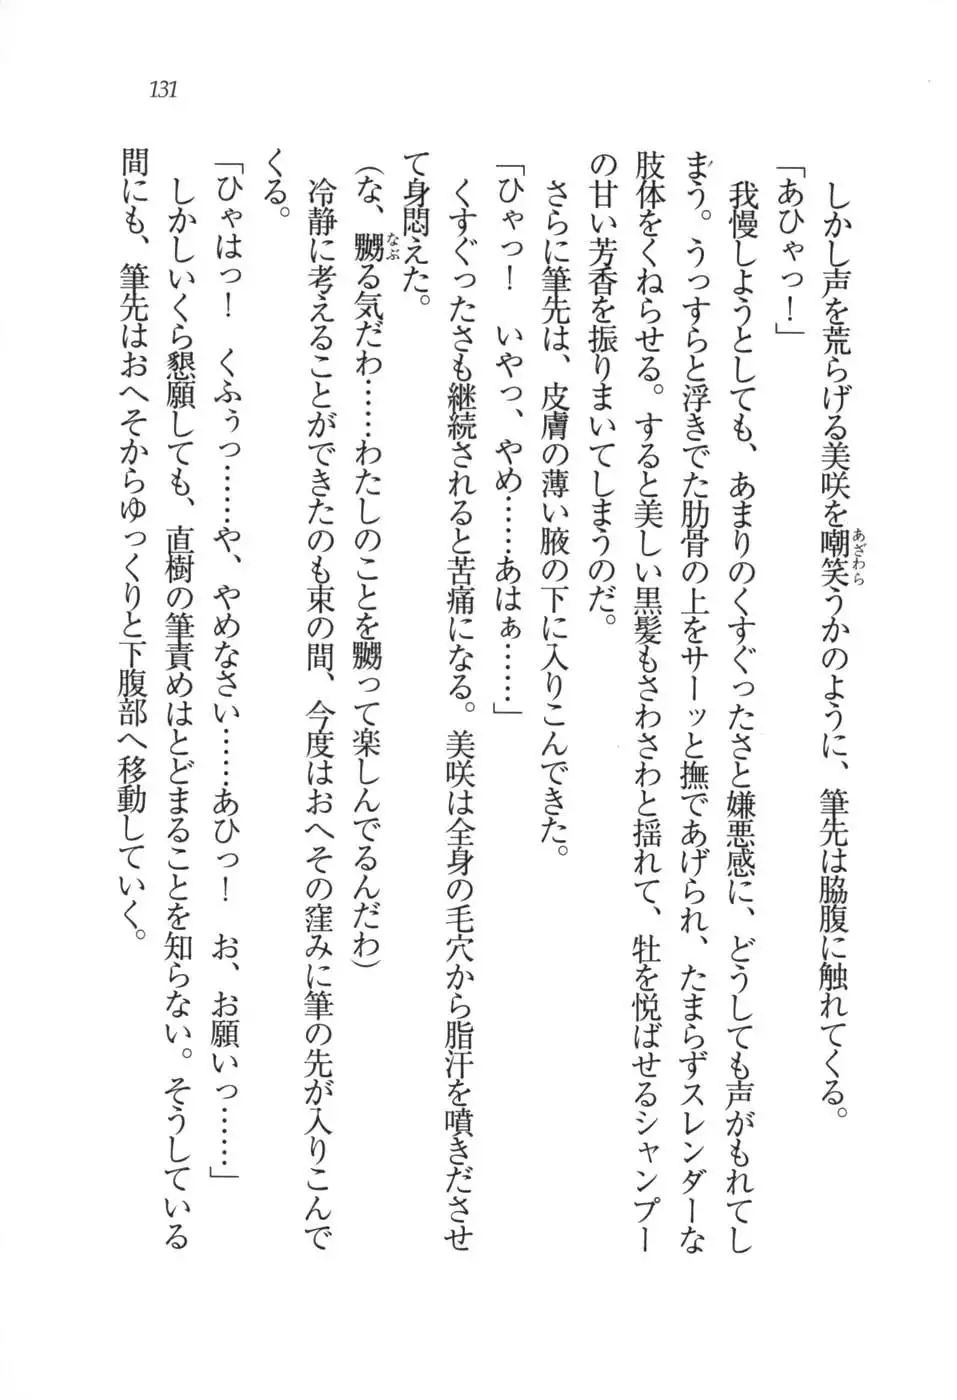 131
しかし声を荒らげる美咲を嘲笑うかのように、筆先は脇腹に触れてくる。
あざわら
「あひゃっ！」
我慢しようとしても、あまりのくすぐったさと嫌悪感に、どうしても声がもれてし
まう。うっすらと浮きでた肋骨の上をサーッと撫であげられ、たまらずスレンダーな
肢体をくねらせる。すると美しい黒髪もさわさわと揺れて、牡を悦ばせるシャンプー
の甘い芳香を振りまいてしまうのだ。
さらに筆先は、皮膚の薄い腋の下に入りこんできた。
「ひゃっ！　いやっ、やめ……あはぁ……」
くすぐったさも継続されると苦痛になる。美咲は全身の毛穴から脂汗を噴きださせ
て身悶えた。
（な、嬲る気だわ……わたしのことを嬲って楽しんでるんだわ）
なぶ
冷静に考えることができたのも束の間、今度はおへその窪みに筆の先が入りこんで
くる。
「ひゃはっ！　くふぅっ……や、やめなさい……あひっ！　お、お願いっ……」
しかしいくら懇願しても、直樹の筆責めはとどまることを知らない。そうしている
間にも、筆先はおへそからゆっくりと下腹部へ移動していく。